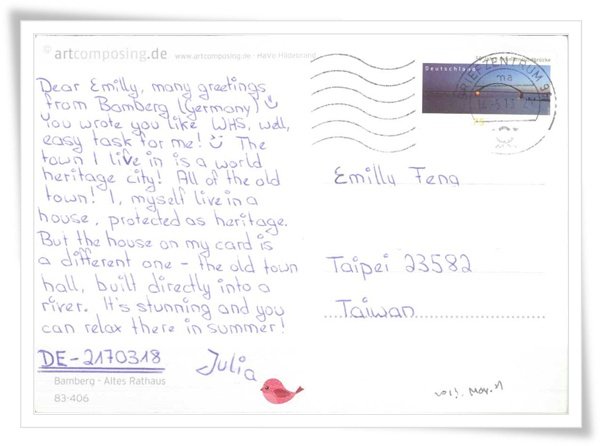 © artcomposing.de www.artcomposing.de
Dear Emilly, many greetings
from Bamberg (Germany)
You wrote you like WHS, well,
easy task for me! The
town I live in is a world
heritage city! All of the old
town! I, myself live in a
house, protected as heritage.
But the house on my card is
a different one - the old town
hall, built directly into a
river. It's stunning and you
can relax there in summer!
DE-2170318
Julia
Bamberg - Altes Rathaus
83-406
Deutschland
BRIEFZENTRUM 9
Emilly Feng
Taipei 23582
Taiwan